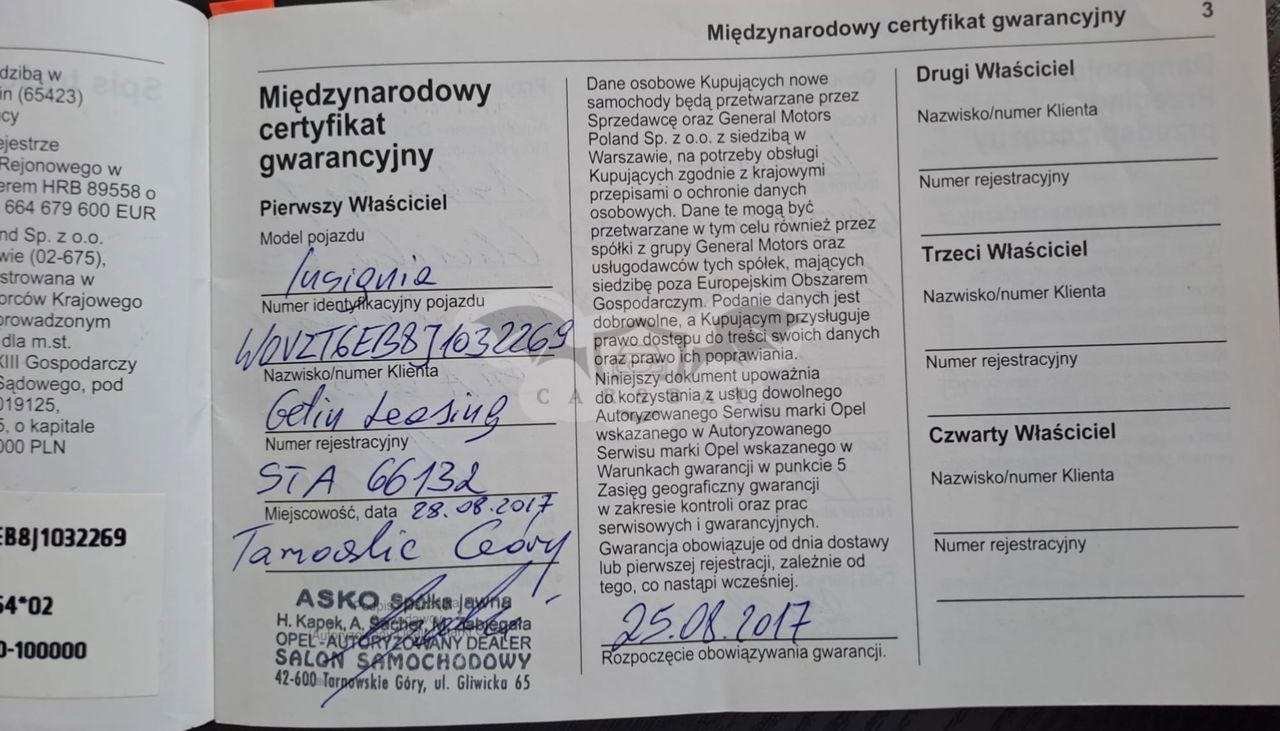 dzibą w
in (65423)
cy
ejestrze
Rejonowego w
erem HRB 89558 o
664 679 600 EUR
nd Sp. z o.o.
wie (02-675),
strowana w
orców Krajowego
prowadzonym
dla m.st.
XIII Gospodarczy
Sądowego, pod
019125,
5, o kapitale
000 PLN
EB8J1032269
54*02
0-100000
Międzynarodowy certyfikat gwarancyjny
3
Międzynarodowy
certyfikat
gwarancyjny
Pierwszy Właściciel
Model pojazdu
Insignia
Numer identyfikacyjny pojazdu
W0VZT6EB8J1032269
Nazwisko/numer Klienta
Getin Leasing
Numer rejestracyjny
STA 66132
Miejscowość, data 28.08.2017
Tarnowskie Góry
ASKO Spółka Jawna
H. Kapek, A. Sacher, M. Zabiegała
OPEL-AUTORYZOWANY DEALER
SALON SAMOCHODOWY
42-600 Tarnowskie Góry, ul. Gliwicka 65
Dane osobowe Kupujących nowe
samochody będą przetwarzane przez
Sprzedawcę oraz General Motors
Poland Sp. z o.o. z siedzibą w
Warszawie, na potrzeby obsługi
Kupujących zgodnie z krajowymi
przepisami o ochronie danych
osobowych. Dane te mogą być
przetwarzane w tym celu również przez
spółki z grupy General Motors oraz
usługodawców tych spółek, mających
siedzibę poza Europejskim Obszarem
Gospodarczym. Podanie danych jest
dobrowolne, a Kupującym przysługuje
prawo dostępu do treści swoich danych
oraz prawo ich poprawiania.
Niniejszy dokument upoważnia
do korzystania z usług dowolnego
Autoryzowanego Serwisu marki Opel
wskazanego w Autoryzowanego
Serwisu marki Opel wskazanego w
Warunkach gwarancji w punkcie 5
Zasięg geograficzny gwarancji
w zakresie kontroli oraz prac
serwisowych i gwarancyjnych.
Gwarancja obowiązuje od dnia dostawy
lub pierwszej rejestracji, zależnie od
tego, co nastąpi wcześniej.
25.08.2017
Rozpoczęcie obowiązywania gwarancji.
Drugi Właściciel
Nazwisko/numer Klienta
Numer rejestracyjny
Trzeci Właściciel
Nazwisko/numer Klienta
Numer rejestracyjny
Czwarty Właściciel
Nazwisko/numer Klienta
Numer rejestracyjny